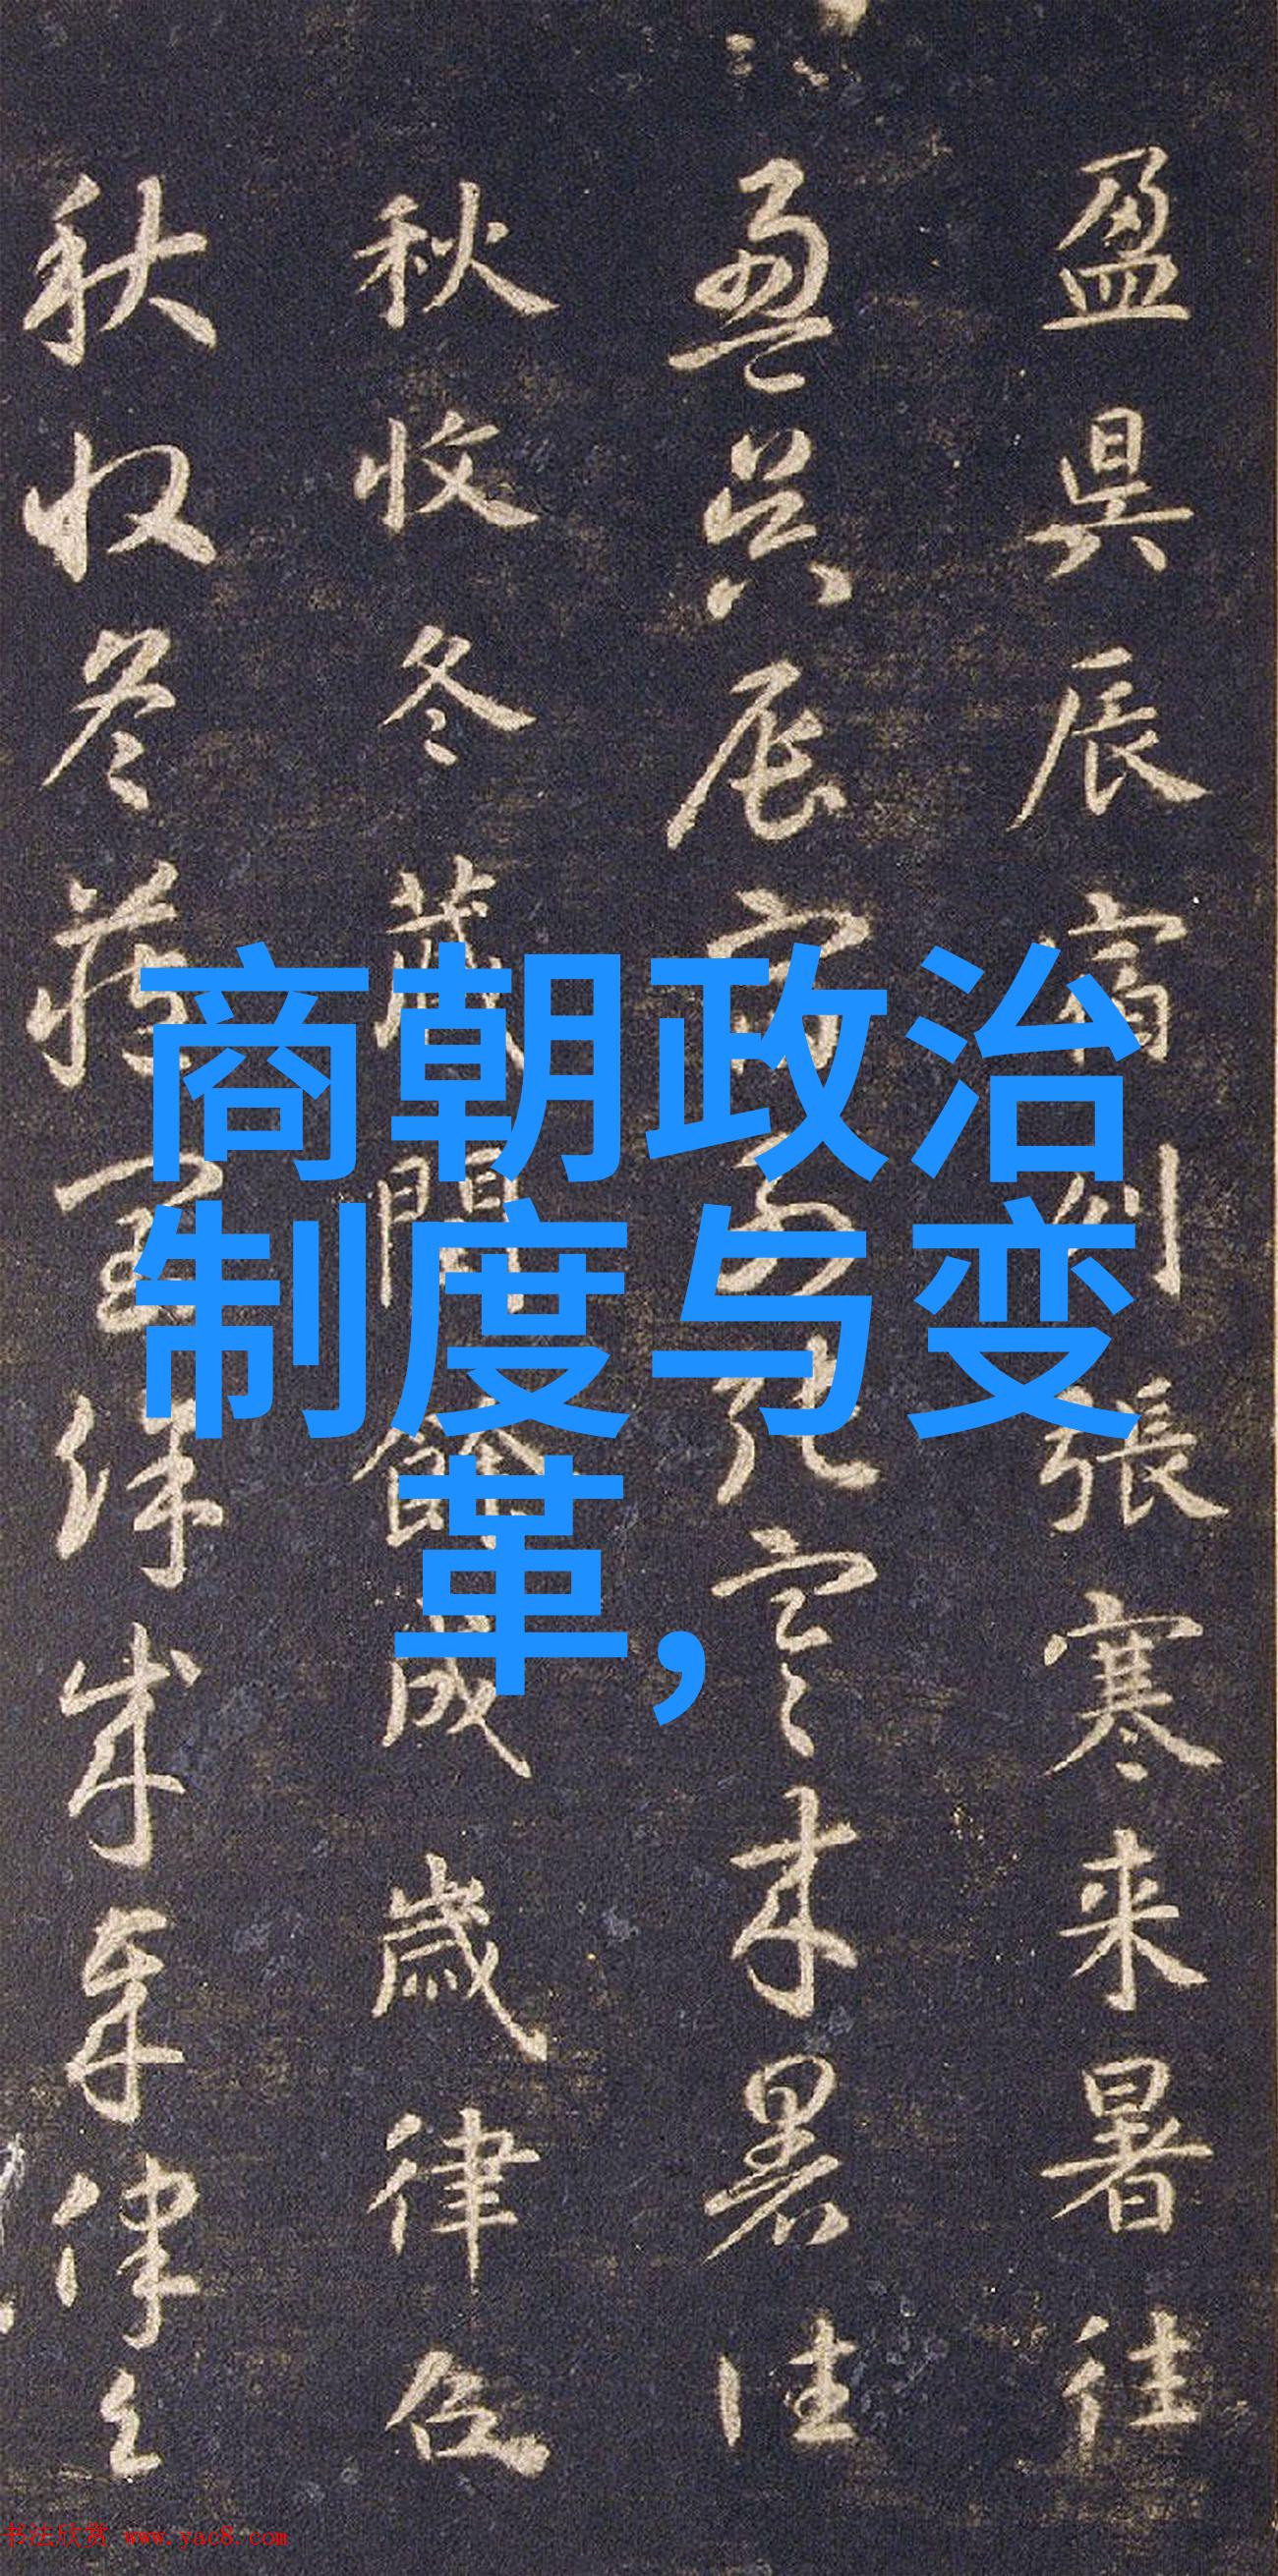 盈昃辰宿列張寒来暑往
盈昃辰宿列張寒来暑往
秋收冬藏閏餘成歲律呂
秋收冬藏閏餘成歲律呂
商朝政治
制度与变
革,
书法欣赏 www.yac8.com